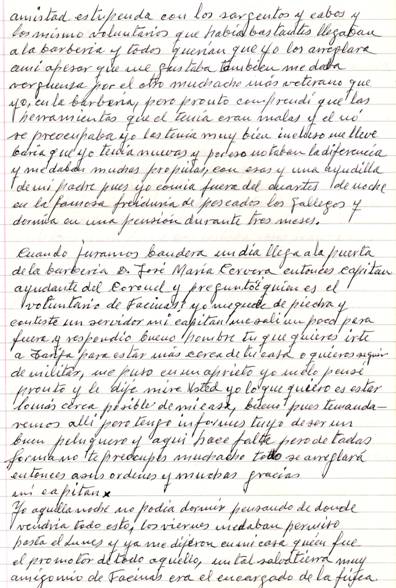 amistad estupenda con los sargentos y cabos y
los mismo voluntarios que había bastantes llegaban
a la barbería y todos querian que yo los arreglara
ami apesar que me gustaba tambien me daba
verguensa por el otro muchacho más veterano que
yo, en la barbería, pero pronto comprendí que las
herramientas que el tenia eran malas y el nó
se preocupaba yo las tenía muy bien incluso me lleve
que yo tenía nuevas y por eso notaban la diferencia
y me daban muchas propinas, con esas y una ayudilla
de mi padre pues yo comía fuera del cuartel de noche
en la famosa freiduria de pescados los Gallegos y
dormia en una pensión durante tres meses.
Cuando juramos bandera un dia llega a la puerta
de la barbería D. José María Cervera entonces capitan
ayudante del Coronel y preguntó quien es el
voluntario de Facinas yo me quede de piedra y
conteste un servidor mi capitan me sali un poco para
fuera y respondio bueno hombre tu que quieres irte
a Tarifa para estar más cerca de tu casa o quieres seguir
de militar, me puso en un aprieto yo me lo pensé
pronto y le dije mire Usted yo lo que quiero es estar
lo más cerca posible de mi casa, bueno pues te manda-
remos allí pero tengo informes tuyo de ser un
buen peluquero y aquí hace falta pero de todas
forma no te preocupes muchacho todo se arreglará
entonces a sus ordenes y muchas gracias
mi capitan
Yo aquella noche no podia dormir pensando de donde
vendría todo esto, los viernes me daban permiso
hasta el Lunes y ya me dijeron en mi casa quien fue
el promotor de todo aquello, un tal Salvatierra muy
amigo mio de Facinas era el encargado de la